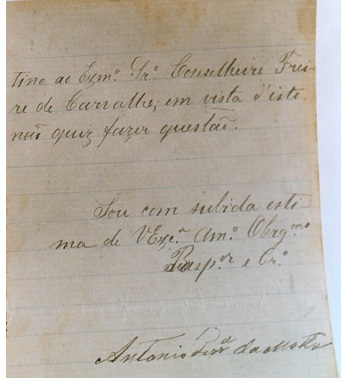 tino ao Exmº. Srº. Conselheiro Frei-
re de Carvalho; em vista d'isto
não quiz fazer questão.
Sou com subida esti-
ma de VExcª. Amº. Obrgmº
Respºr e Crº.
Antonio Ferrª da Motta